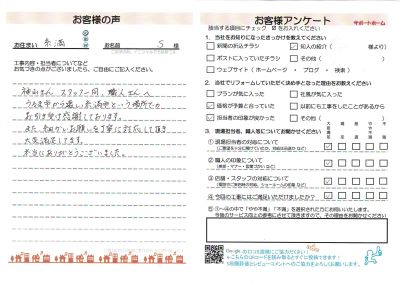 お客様の声
お住まい 糸満
お名前 S 様
工事内容・担当者についてなど
お気づきの点がございましたら、ご自由にご記入ください。
神山さん、スタッフ一同、職人さんへ
うるま市から遠い糸満市という場所での
お引き受け感謝しております。
また、細かいお願いも丁寧に対応して頂き
大変満足してます。
本当にありがとうございました。
お客様アンケート
サポートホーム
該当する項目にチェック ☑ をお入れください
1. 当社をお知りになったきっかけをお教えください
□ 新聞の折込チラシ ☑ 知人の紹介( 様より)
□ ポストに入っていたチラシ □ その他( )
□ ウェブサイト(ホームページ ・ ブログ ・ 検索)
2. 当社でリフォームしていただくことになった理由をお教えください
□ プランが気に入った □ 社風が気に入った
☑ 価格が予算と合っていた □ 以前にも工事をしたことがあるから
☑ 担当者の印象が良かった □ その他( )
3. 現場担当者、職人等についてお聞かせください
大変満足 満足 普通 やや不満 不満
① 現場担当者の対応について
② 職人の印象について
③ 店舗・スタッフの対応について
④ 今回の工事にはご満足いただけましたか?
Google の口コミ投稿にご協力ください!